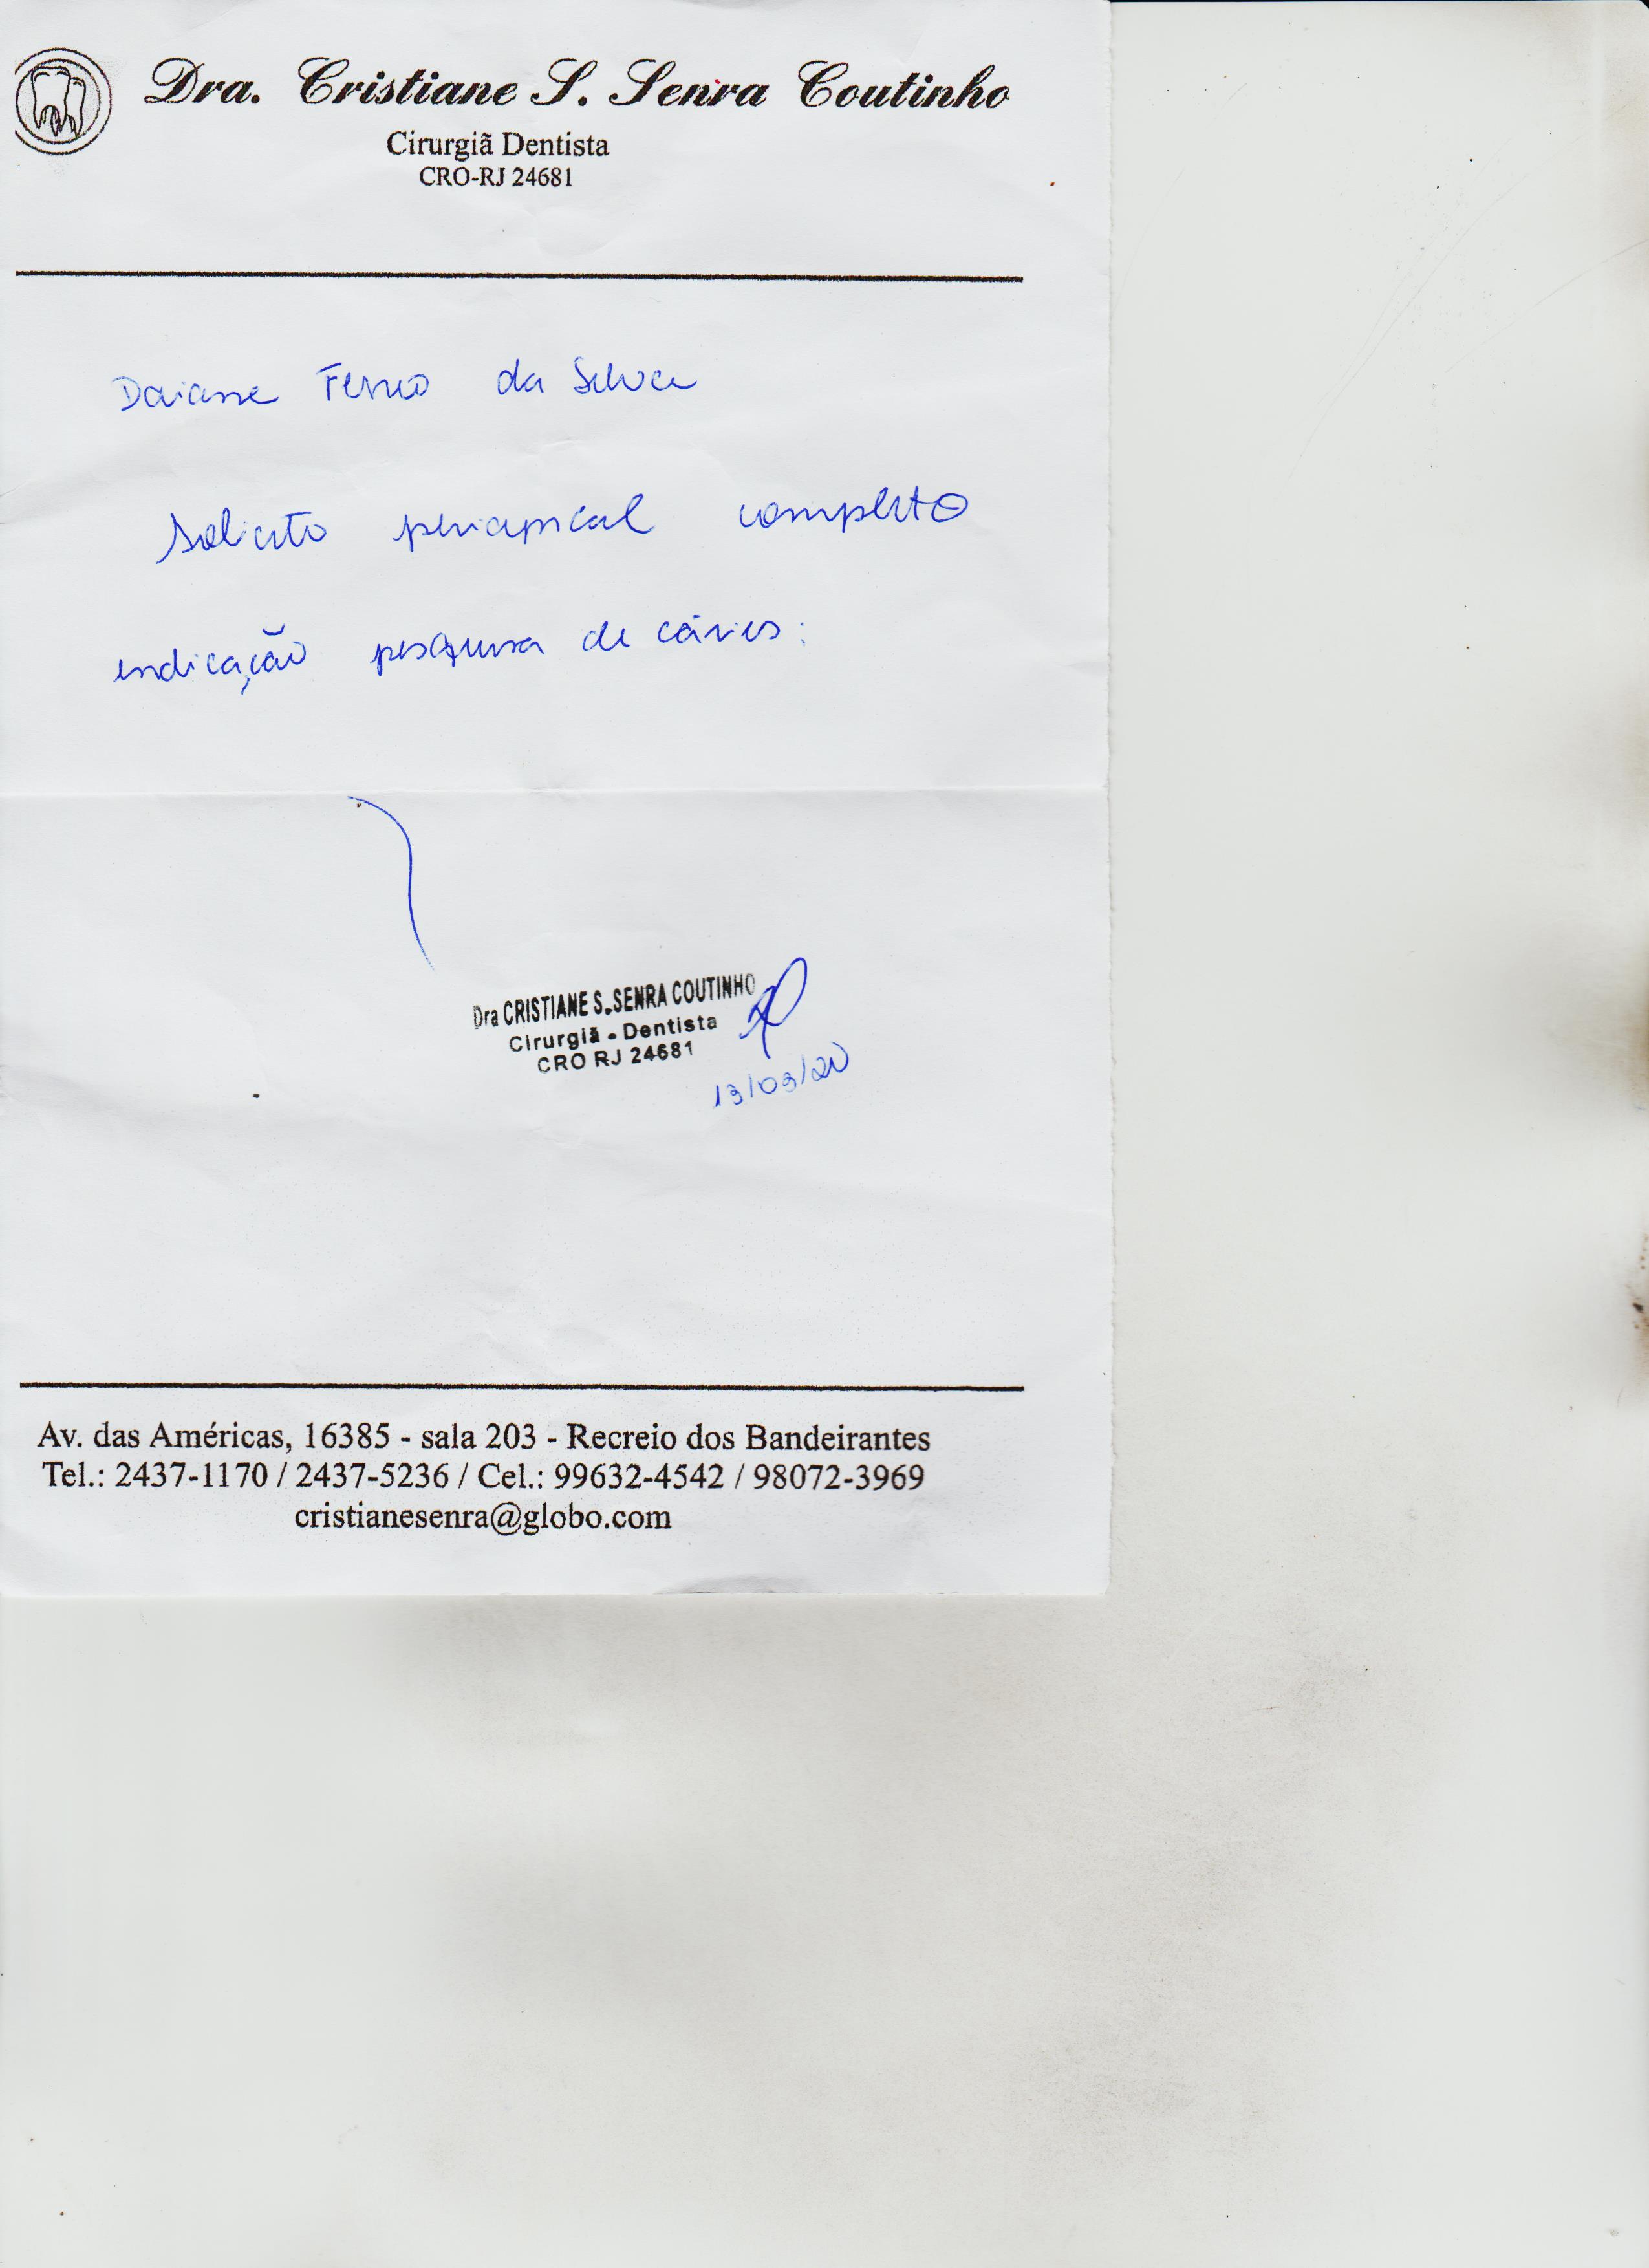 Dra. Cristiane S. Senra Coutinho
Cirurgiã Dentista
CRO-RJ 24681
Daiane da Silva
Solicito periapical completo
indicação pesquisa de cáries:
Dra CRISTIANE S. SENRA COUTINHO
Cirurgiã - Dentista
CRO RJ 24681
13/03/20
Av. das Américas, 16385 - sala 203 - Recreio dos Bandeirantes
Tel.: 2437-1170 / 2437-5236 / Cel.: 99632-4542 / 98072-3969
cristianesenra@globo.com